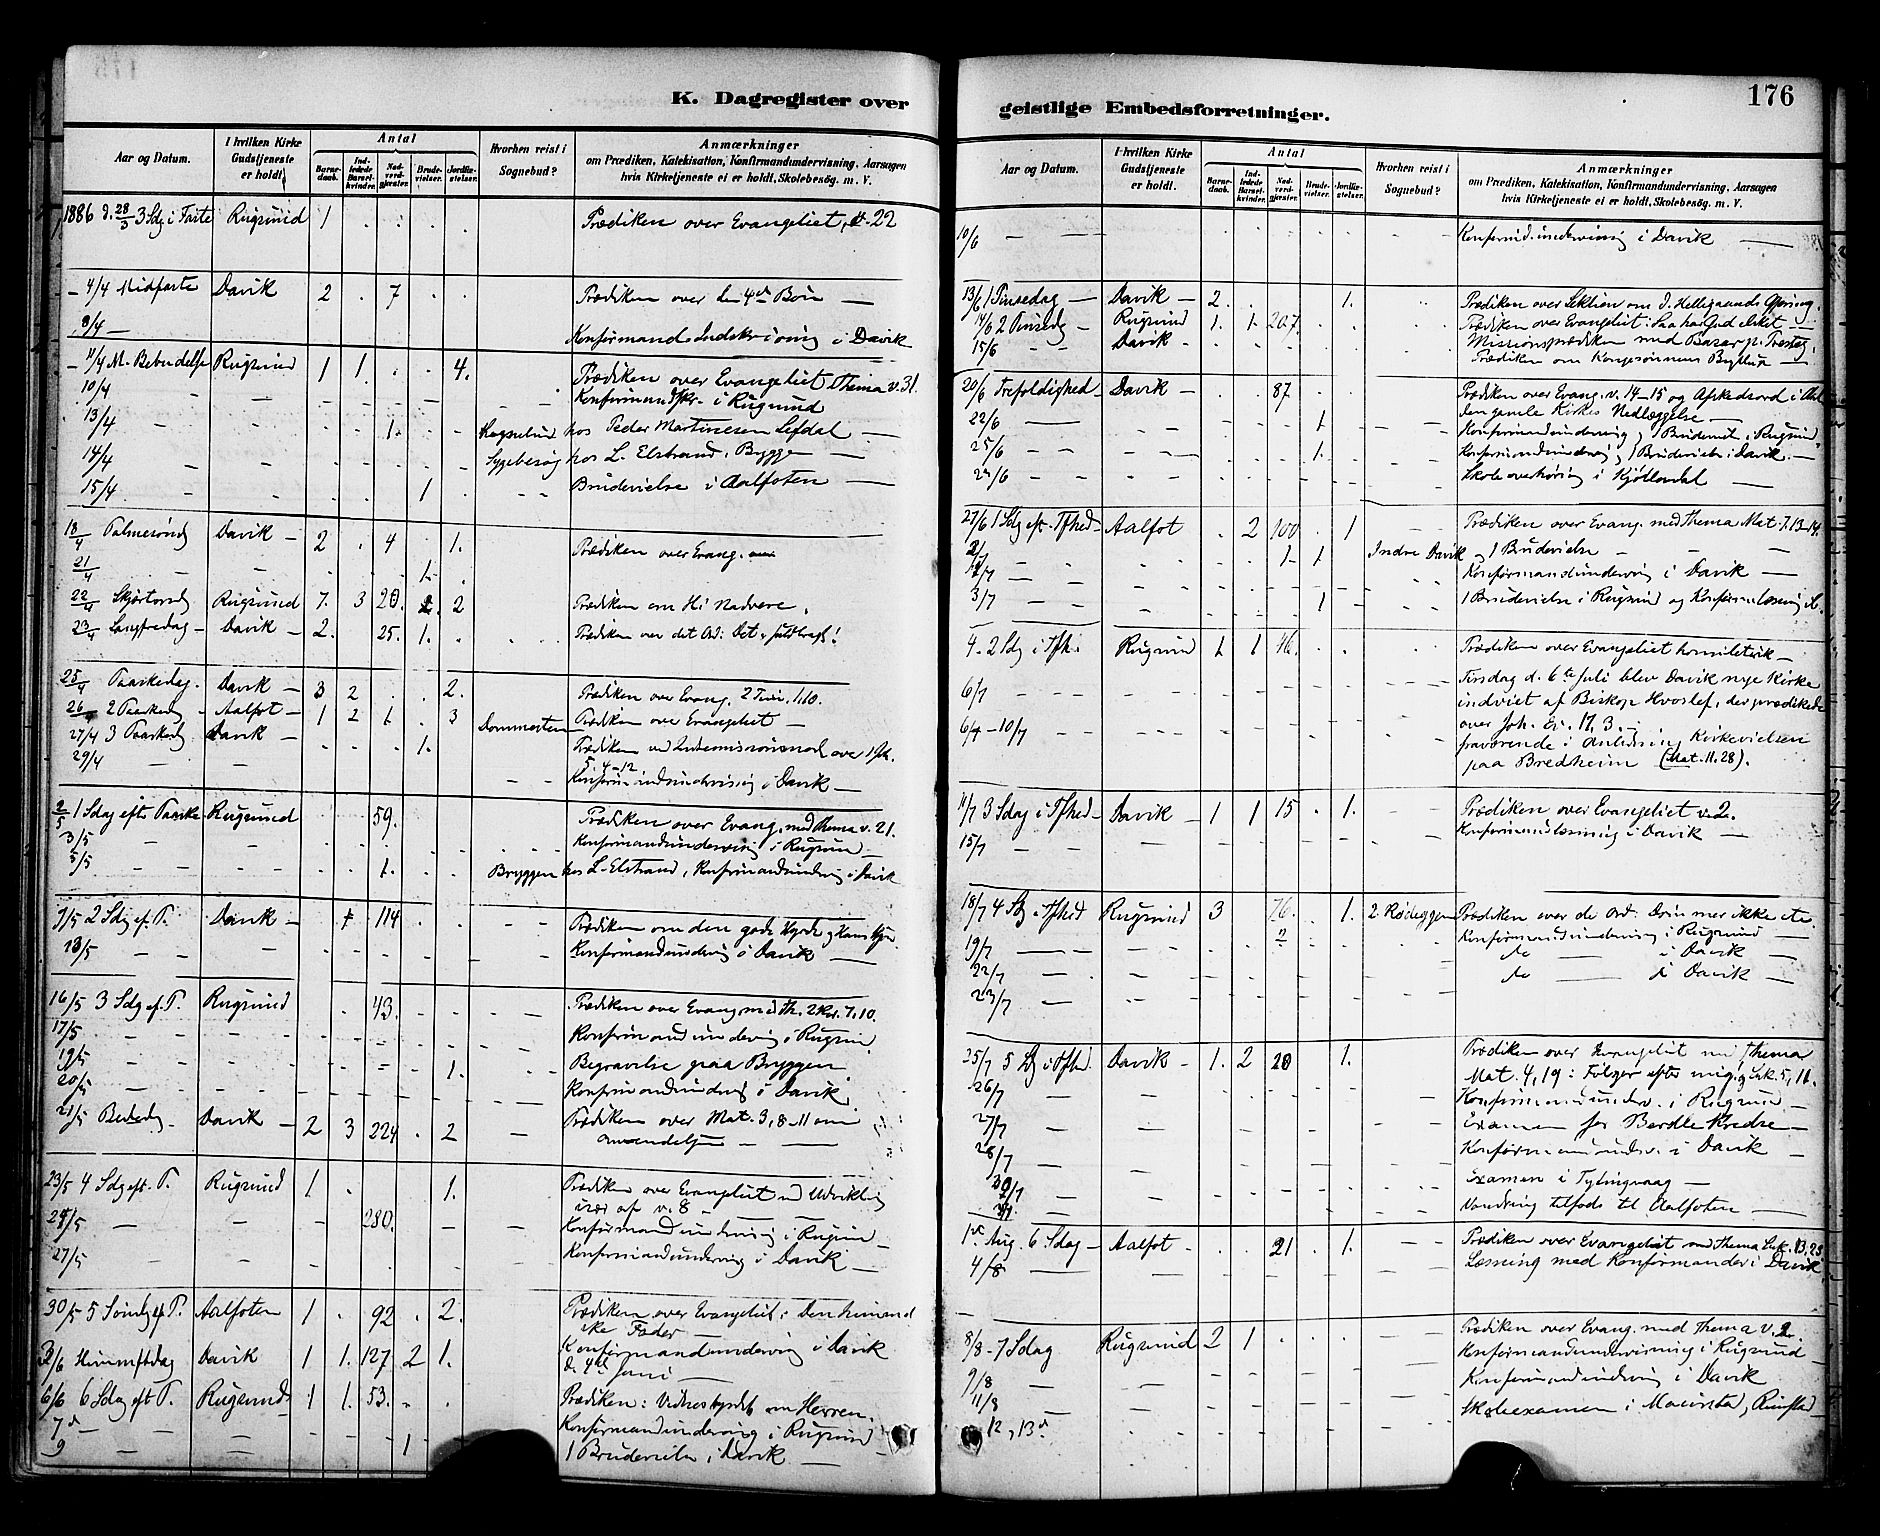 K. Dagregister over
geistlige Embedsforretninger.
176
Aar og Datum.
I hvilken Kirke Gudstjeneste er holdt.
Antal
Barne-daab.
Ind-ledede Barsel-kvinder.
Nad-verd-gjester.
Brude-vielser.
Jordfæ-stelser.
Hvorhen reist i Sognebud?
Anmærkninger
om Prædiken, Katekisation, Konfirmandundervisning, Aarsagen
hvis Kirketjeneste ei er holdt, Skolebesøg. m. V.
1886 d. 28/3 3 Sdg i Faste Rugsund 1 Prædiken over Evangeliet, v. 22
4/4 Midfaste Davik 2 7 Prædiken over den 4de Bøn
8/4 Konfirmand Indskrivning i Davik
4/4 M. Bebudelse Rugsund 1 1. 4. Prædiken over Evangeliet Thema v. 31.
10/4 Konfirmandskr. i Rugsund
13/4 1. hos Peder Martinesen Lefdal
14/4 Sygebesøg hos L. Elstrand, Bryggen
15/4 1 Brudevielse i Aalfoten
18/4 Palmesønd Davik 2 4 1. Prædiken over Evang.
21/4 1.
22/4 Skjærtorsd Rugsund 7. 3 20. 2. 2 Prædiken om H. Nadvere.
23/4 Langfredag Davik 2. 25. 1. Prædiken over det Ord: Det er fuldbragt!
25/4 Paaskedag. Davik 3 2 2. Prædiken over Evang. 2 Tim. 1.10.
26 2 Paaskedag Aalfot 1 2 1 3 Prædiken over Evangeliet
27/4 3 Paaskedg Davik 1.
5. 4-12
29/4 Konfirmandundervisning i Davik
2/5 1 Sdag efter Paaske Rugsund 59. Prædiken over Evang. med Thema v. 21.
3/5 Konfirmandundervisng i Rugsun
5/5 1. Bryggen hos L. Elstrand, Konfirmandundervg i Davik
9/5 2 Sdg ef. P. Davik 114 Prædiken om den gode Hyrde og Hans Hjor
13/5 Konfirmandundervg i Davik
16/5 3 Sdg ef. P. Rugsund 43. Prædiken over Evang med Th. 2 Kor. 7, 10.
17/5 Konfirmandundervg i Rugsun.
19/5 1. Begravelse paa Bryggen
20/5 Konfirmandunderv i Davik
21/5 Bededg Davik 2 3 224 2 Prædiken over Mat. 3, 8-11 om
Omvendelsen
23/5 4 Sdg eft. P. Rugsund 1 1. Prædiken over Evangeliet
især af v. 8
24/5 280. Konfirmandundervisng i Rugsun
27/5 Konfirmandunderving i Davik
30/5 5 Søndg ef P. Aalfoten 1 92 2. Prædiken over Evangeliet: Den himmel
ske Fader
3/6 Himmelfdag Davik 1 1. 127 2 1. Konfirmandunderving i Davik
d. 4de Juni
6/6 6 Sdag eft P. Rugsund 1 1. 53. Prædiken: Vidnesbyrdet om Herren.
7d Konfirmandunderving i Rugsund
9 1 1 Brudevielse i Davik
10/6 Konfirmd. undervisng i Davik
13/6 1 Pinsedag Davik 2. 1. Prædiken over Lektien om d. Helligaands
14/6 2 Pinsedg Rugsund 1. 1. 207. Prædiken over Evangeliet: Saa har Gud elsket
15/6 Davik Missionsprædiken med Bazar
Prædiken om Kongesønnens Bryllup
20/6 Trefoldighed Davik 87 Prædiken over Evang. v. 14-15 og Afskedsord i Anl
den gamle Kirkes Nedlæggelse
22/6 1 Konfirmandunderving, 1 Brudeviels i Rugsund
25/6 1. Konfirmandunderving, 1 Brudevielse i Davik.
Skole overhøring i Kjøllandal
27/6 1 Sdg ef. Tfhed Aalfot 2 100 1 Prædiken over Evang. med Thema Mat. 7. 13-14.
2/7 1 1 Indre Davik 1 Brudevielse
Konfirmandunderving i Davik
3/7 1 1 Brudevielse i Rugsund og Konfirm. læsning
4 2 Sdg i Tfh. Rugsund 1 1 46. Prædiken over Evangeliet homiletisk
6/7 Tirsdag d. 6te Juli blev Davik nye Kirke
indviet af Biskop Hvoslef, der prædikede
over Joh. Ev. 17, 3.
6/7-10/7 fraværende i Anledning Kirkevielsen
paa Bredheim (Mat. 11. 28).
11/7 3 Sdag i Tfhed Davik 1 1 15 1. Prædiken over Evangeliet v. 2.
15/7 Konfirmandlæsning i Davik
18/7 4 Sdg i Tfhed Rugsund 3 76. 1. Prædiken over de Ord: Døm mer ikke etc.
19/7 2 Konfirmandunderving i Rugsund
22/7 do i Davik
23/7 do i Davik
25/7 5 Sdg i Tfhd. Davik 1. 2 20 1. Prædiken over Evangeliet med Thema
Mat. 4, 19: Følger efter mig, og Luk. 5, 11.
26/7 Konfirmandunderv. i Rugsund
27/7 Examen for Berdle Kredse
28/7 Konfirmandundsv. i Davik
30/7 Examen i Tytingvaag
Vandring tilfods til Aalfoten
1ste Aug. 6 Sdag Aalfot 21 1. Prædiken over Evangeliet med Thema Luk. 13, 23
4/8 Læsning med Konfirmander i Davik
8/8 7 Sdag Rugsund 2 1 Prædiken over Evang. med Thema v. 2.
Konfirmandundervisning i Rugsund
9/8 Konfirmandunderving i Davik
11/8 Skoleexamen i Maurstad, Rimstad
12, 13d